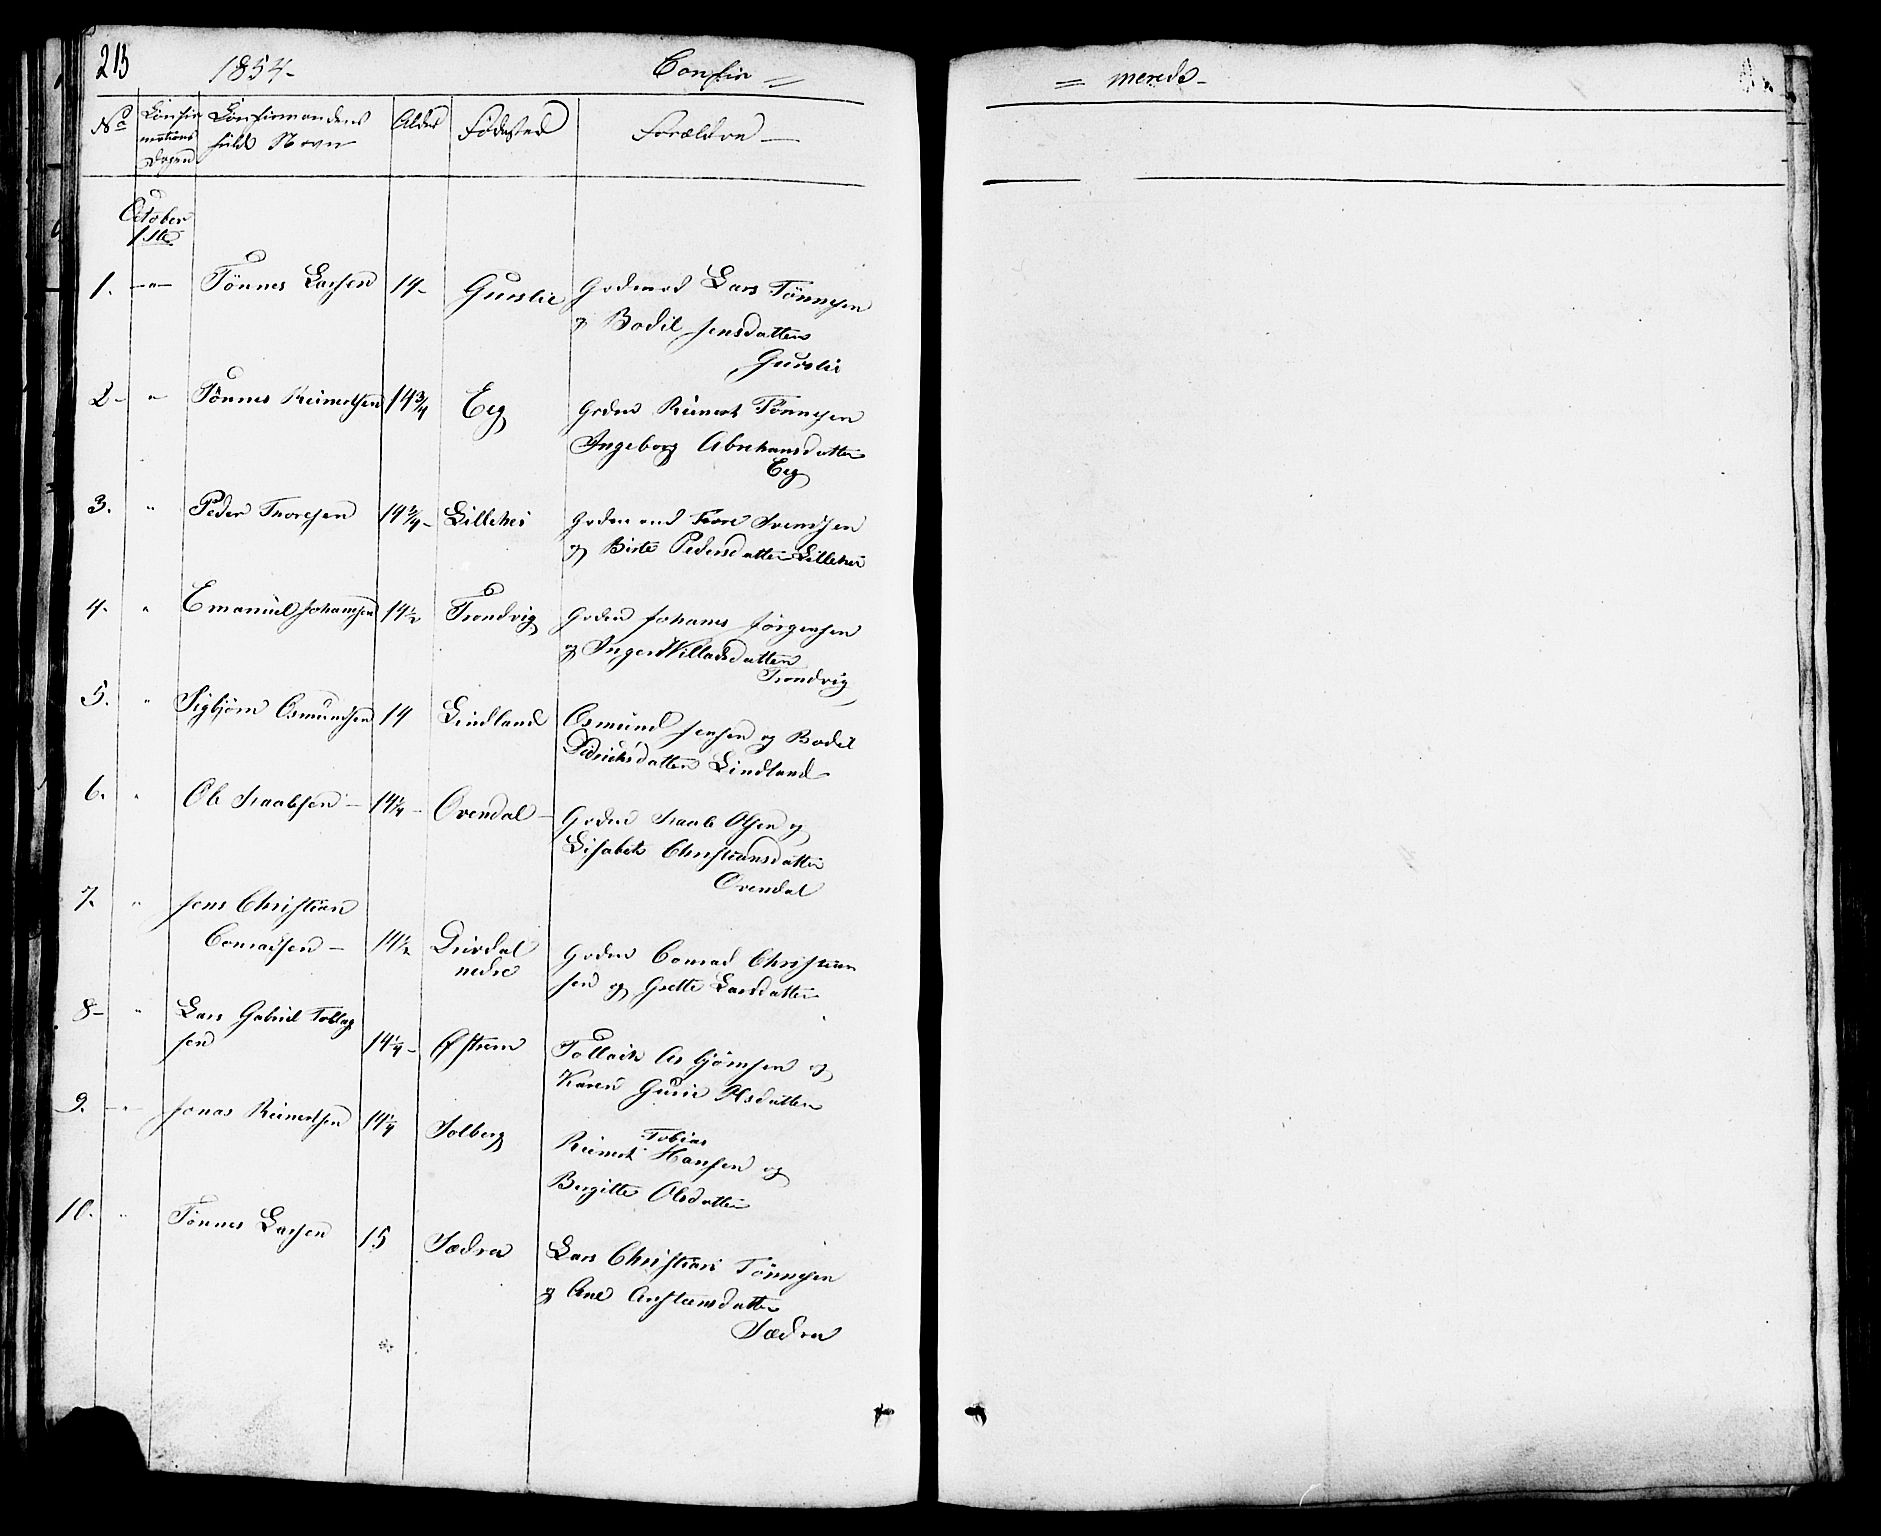 213 1854- Confir =
= merede -
No Confir Confirmandens Alder Fødested Forældre -
mations fulde Navn
Dagen
October
1ste
1. -"- Tønnes Larsen 14- Gurslie Godmand Lars Tønnesen
og Bodil Jensdatter
Gurslie
2- " Tønnes Reinertsen 14 3/4 Eeg Gdmd Reinert Tønnesen
Ingeborg Abrahamsdatter
Eeg
3. " Peder Thoresen 14 3/4- Lillehei Godmand Tore Svendsen
og Birte Pedersdatter Lillehei
4. " Emanuel Johansen 14 1/2 Trondvig Godmd Johannes Jørgensen
og Inger Willadsdatter
Trondvig
5. " Sigbjørn Osmundsen 14 Lindland Osmund Jensen og Bodil
Didrichsdatter Lindland
6. " Ole Traalsen - 14 1/4- Ovendal - Godmd Traale Olsen og
Lisabeth Christiansdatter
Ovendal
7. " Jens Christian
Conradsen - 14 1/2 Dürdal Godmd Conrad Christian
nedre sen og Grette Larsdatter
8- " Lars Gabriel Tollag
sen 14 1/4- Østrem Tollack Asbjørnsen og
Karen Gurie Olsdatter
9. -"- Jonas Reinertsen 14 1/4 Solberg Tobias
Reinert Hansen og
Birgitte Olsdatter
10. " Tønnes Larsen 15 Sædra Lars Christian Tönnesen
og Ane Anstensdatter
Sædra